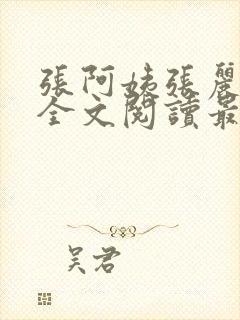 張阿姨張麗
全文閱讀最
吴君